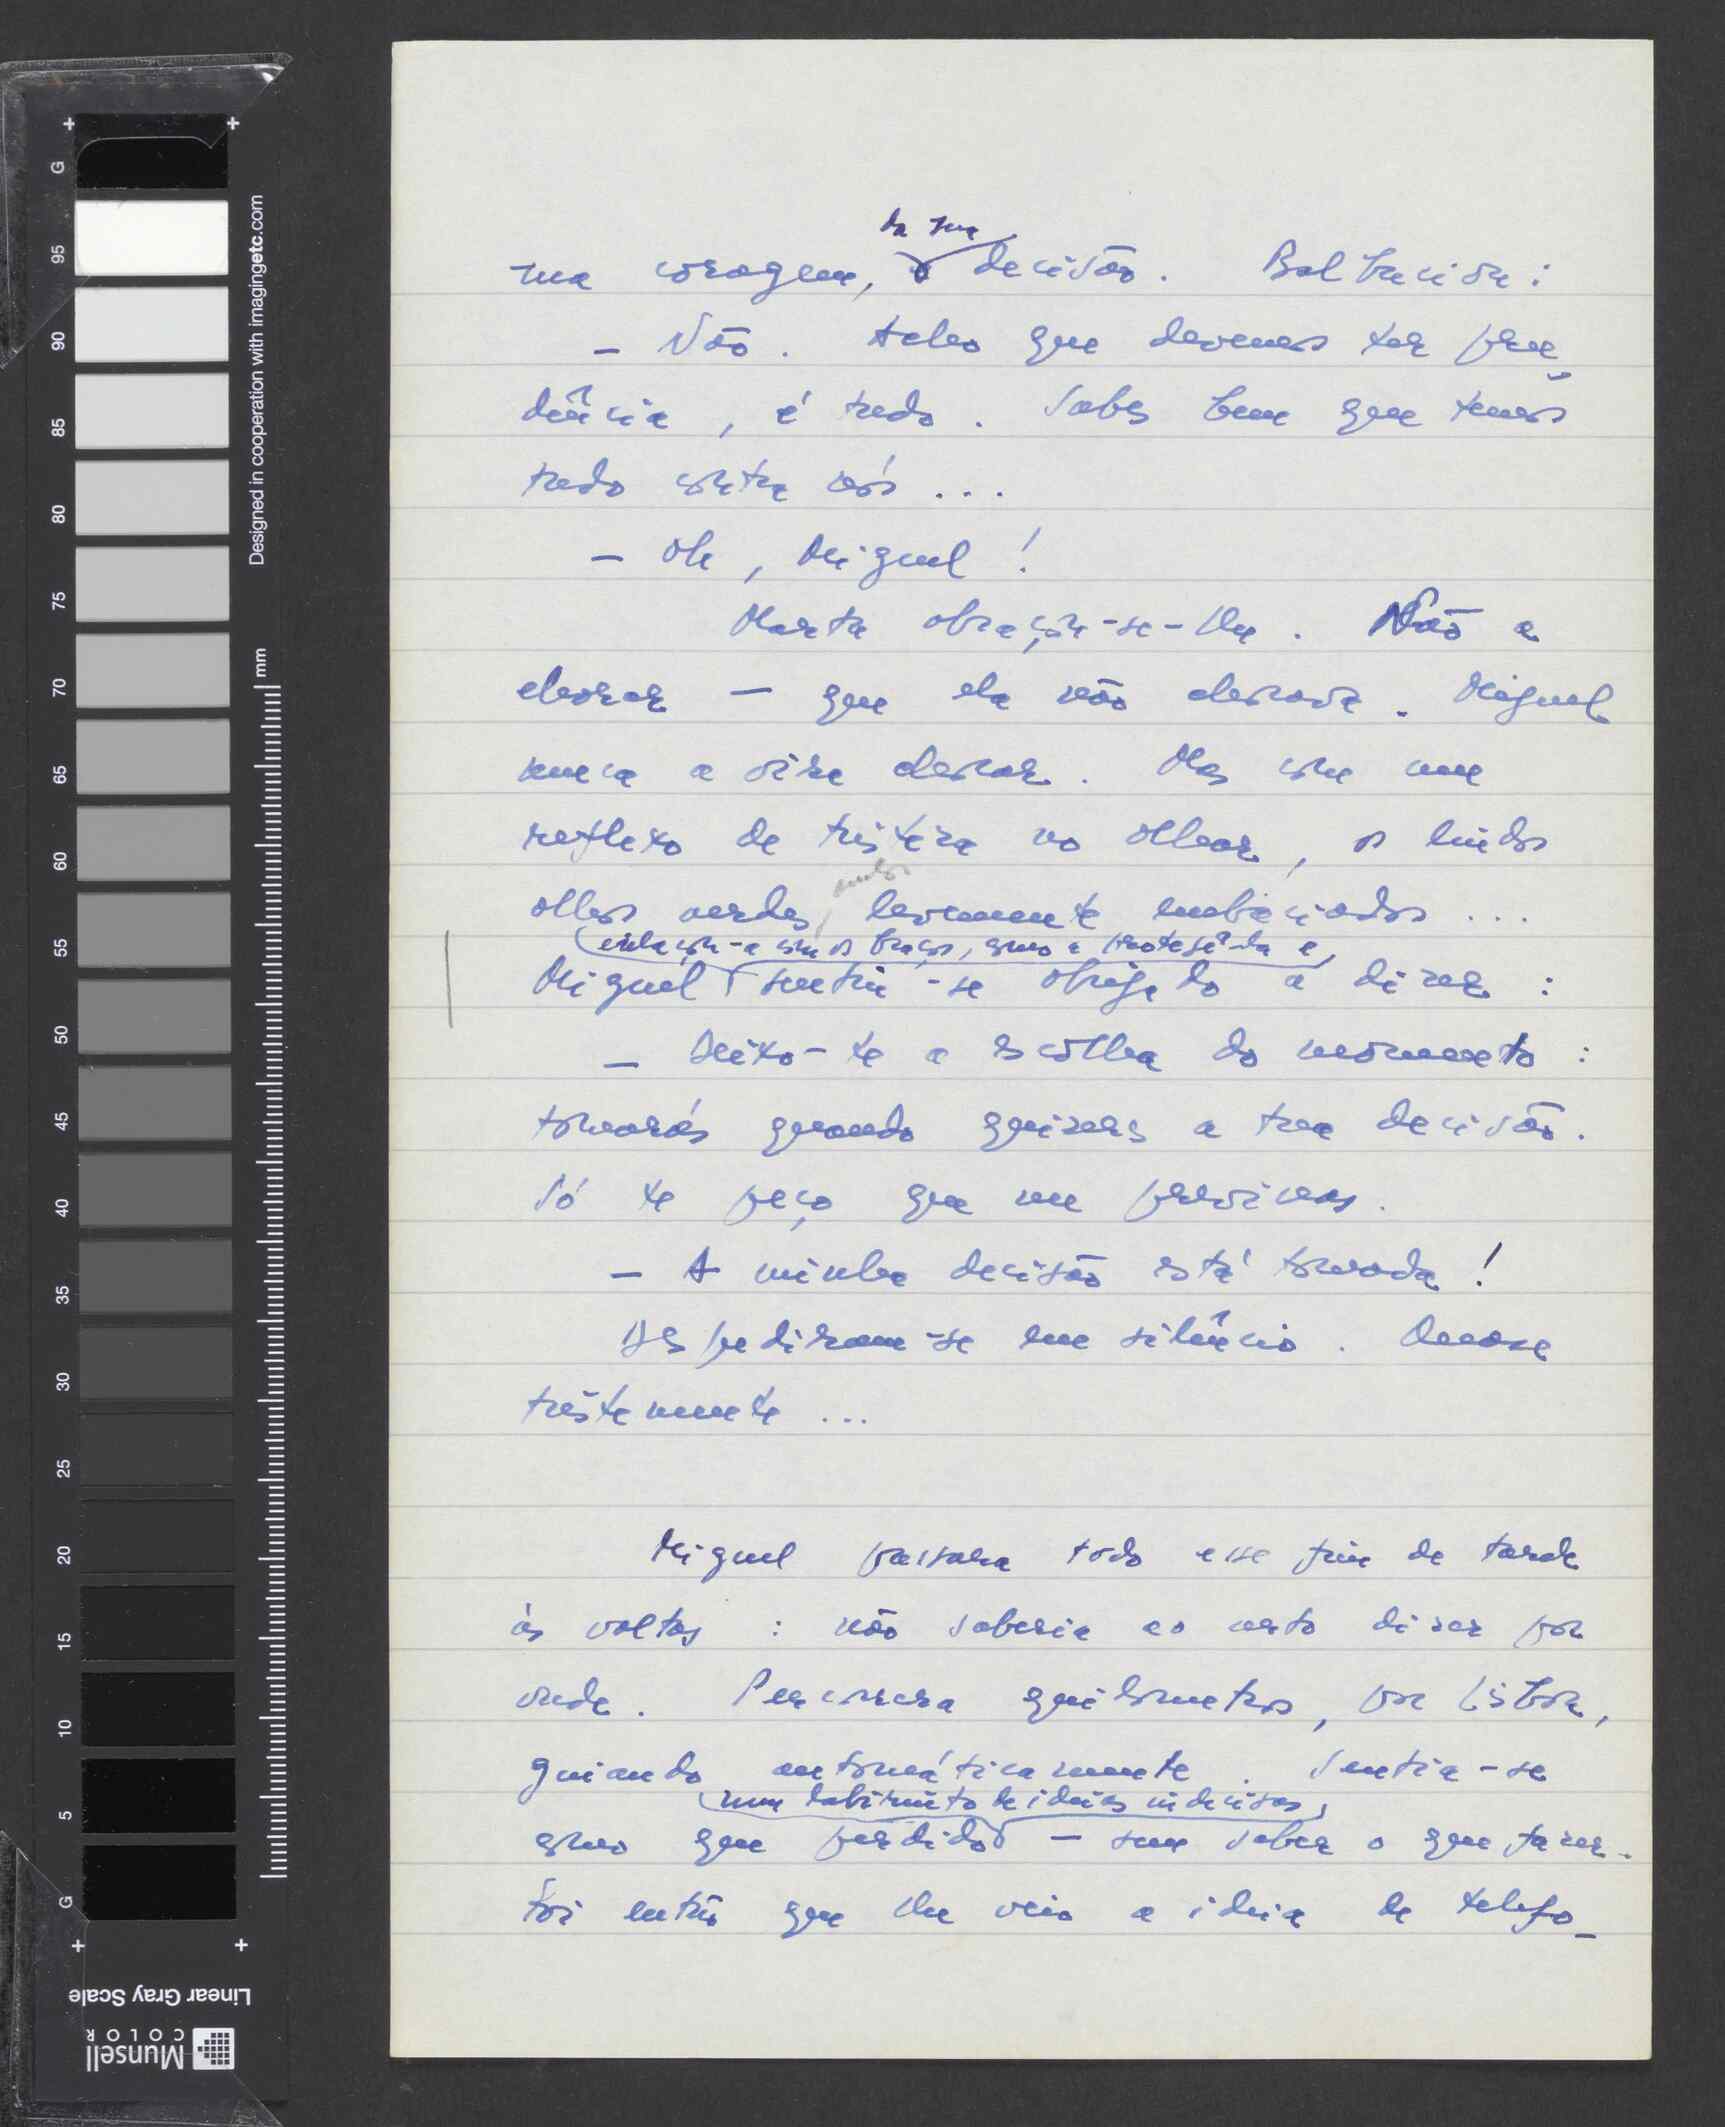 da sua
sua coragem, decisão. Balbuciou:
- Não. Acho que devemos ter pru-
dência, é tudo. Sabes bem que temos
tudo contra nós...
- Oh, Miguel!
Marta abraçou-se-lhe. Não a
chorar - que ela não chorava. Miguel
nunca a vira chorar. Mas com um
reflexo de tristeza no olhar, os lindos
olhos verdes levemente embaciados...
enlaçou-a com os braços, como a protegê-la e,
Miguel sentiu-se obrigado a dizer:
- Deixo-te a escolha do momento:
tomarás quando quiseres a tua decisão.
Só te peço que me previnas.
- A minha decisão está tomada!
Despediram-se em silêncio. Quase
tristemente...
Miguel passara todo esse fim de tarde
às voltas: não saberia ao certo dizer por
onde. Percorrera quilómetros, por Lisboa,
guiando automáticamente. Sentia-se
num labirinto de ideias indecisas,
como que perdido - sem saber o que fazer.
Foi então que lhe veio a ideia de telefo-
G 95 90 85 80 75 70 65 60 55 50 45 40 35 30 25 20 15 10 5 G
Designed in cooperation with imagingetc.com
mm
Linear Gray Scale
Munsell
COLOR